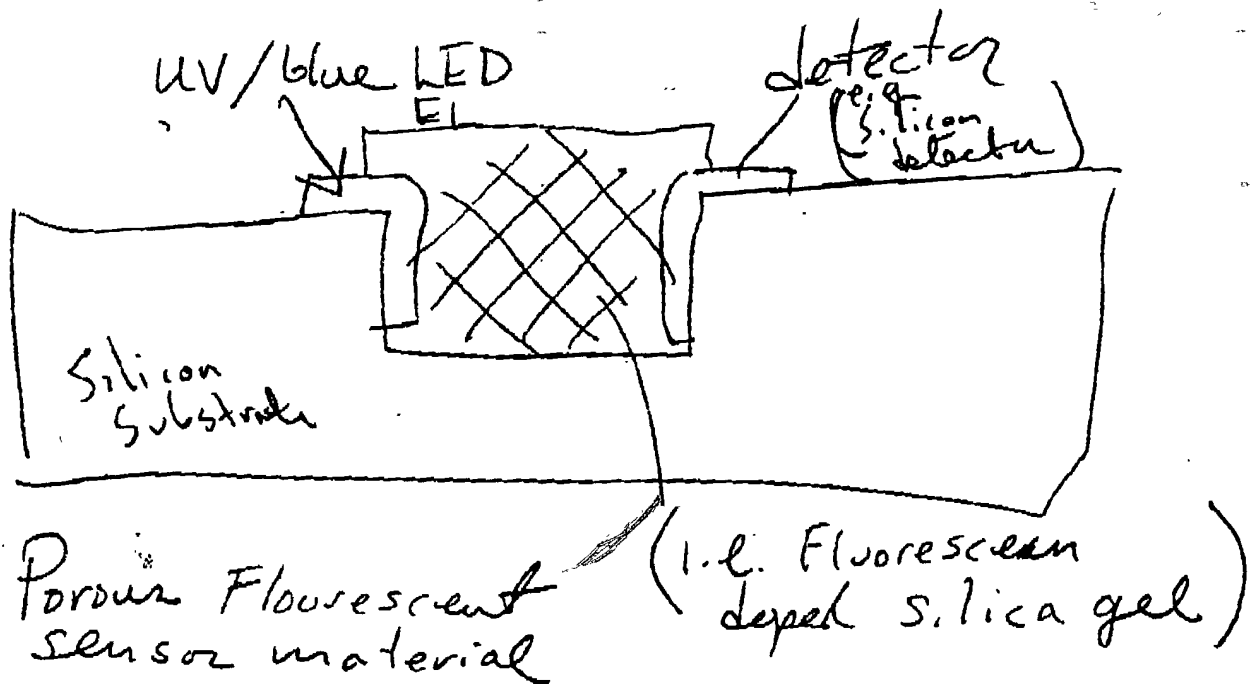 UV/blue LED
EL
detector
(e.g.
Silicon
detector)
Silicon
Substrate
Porous Flourescent
sensor material
(i.e. Fluorescein
doped silica gel)